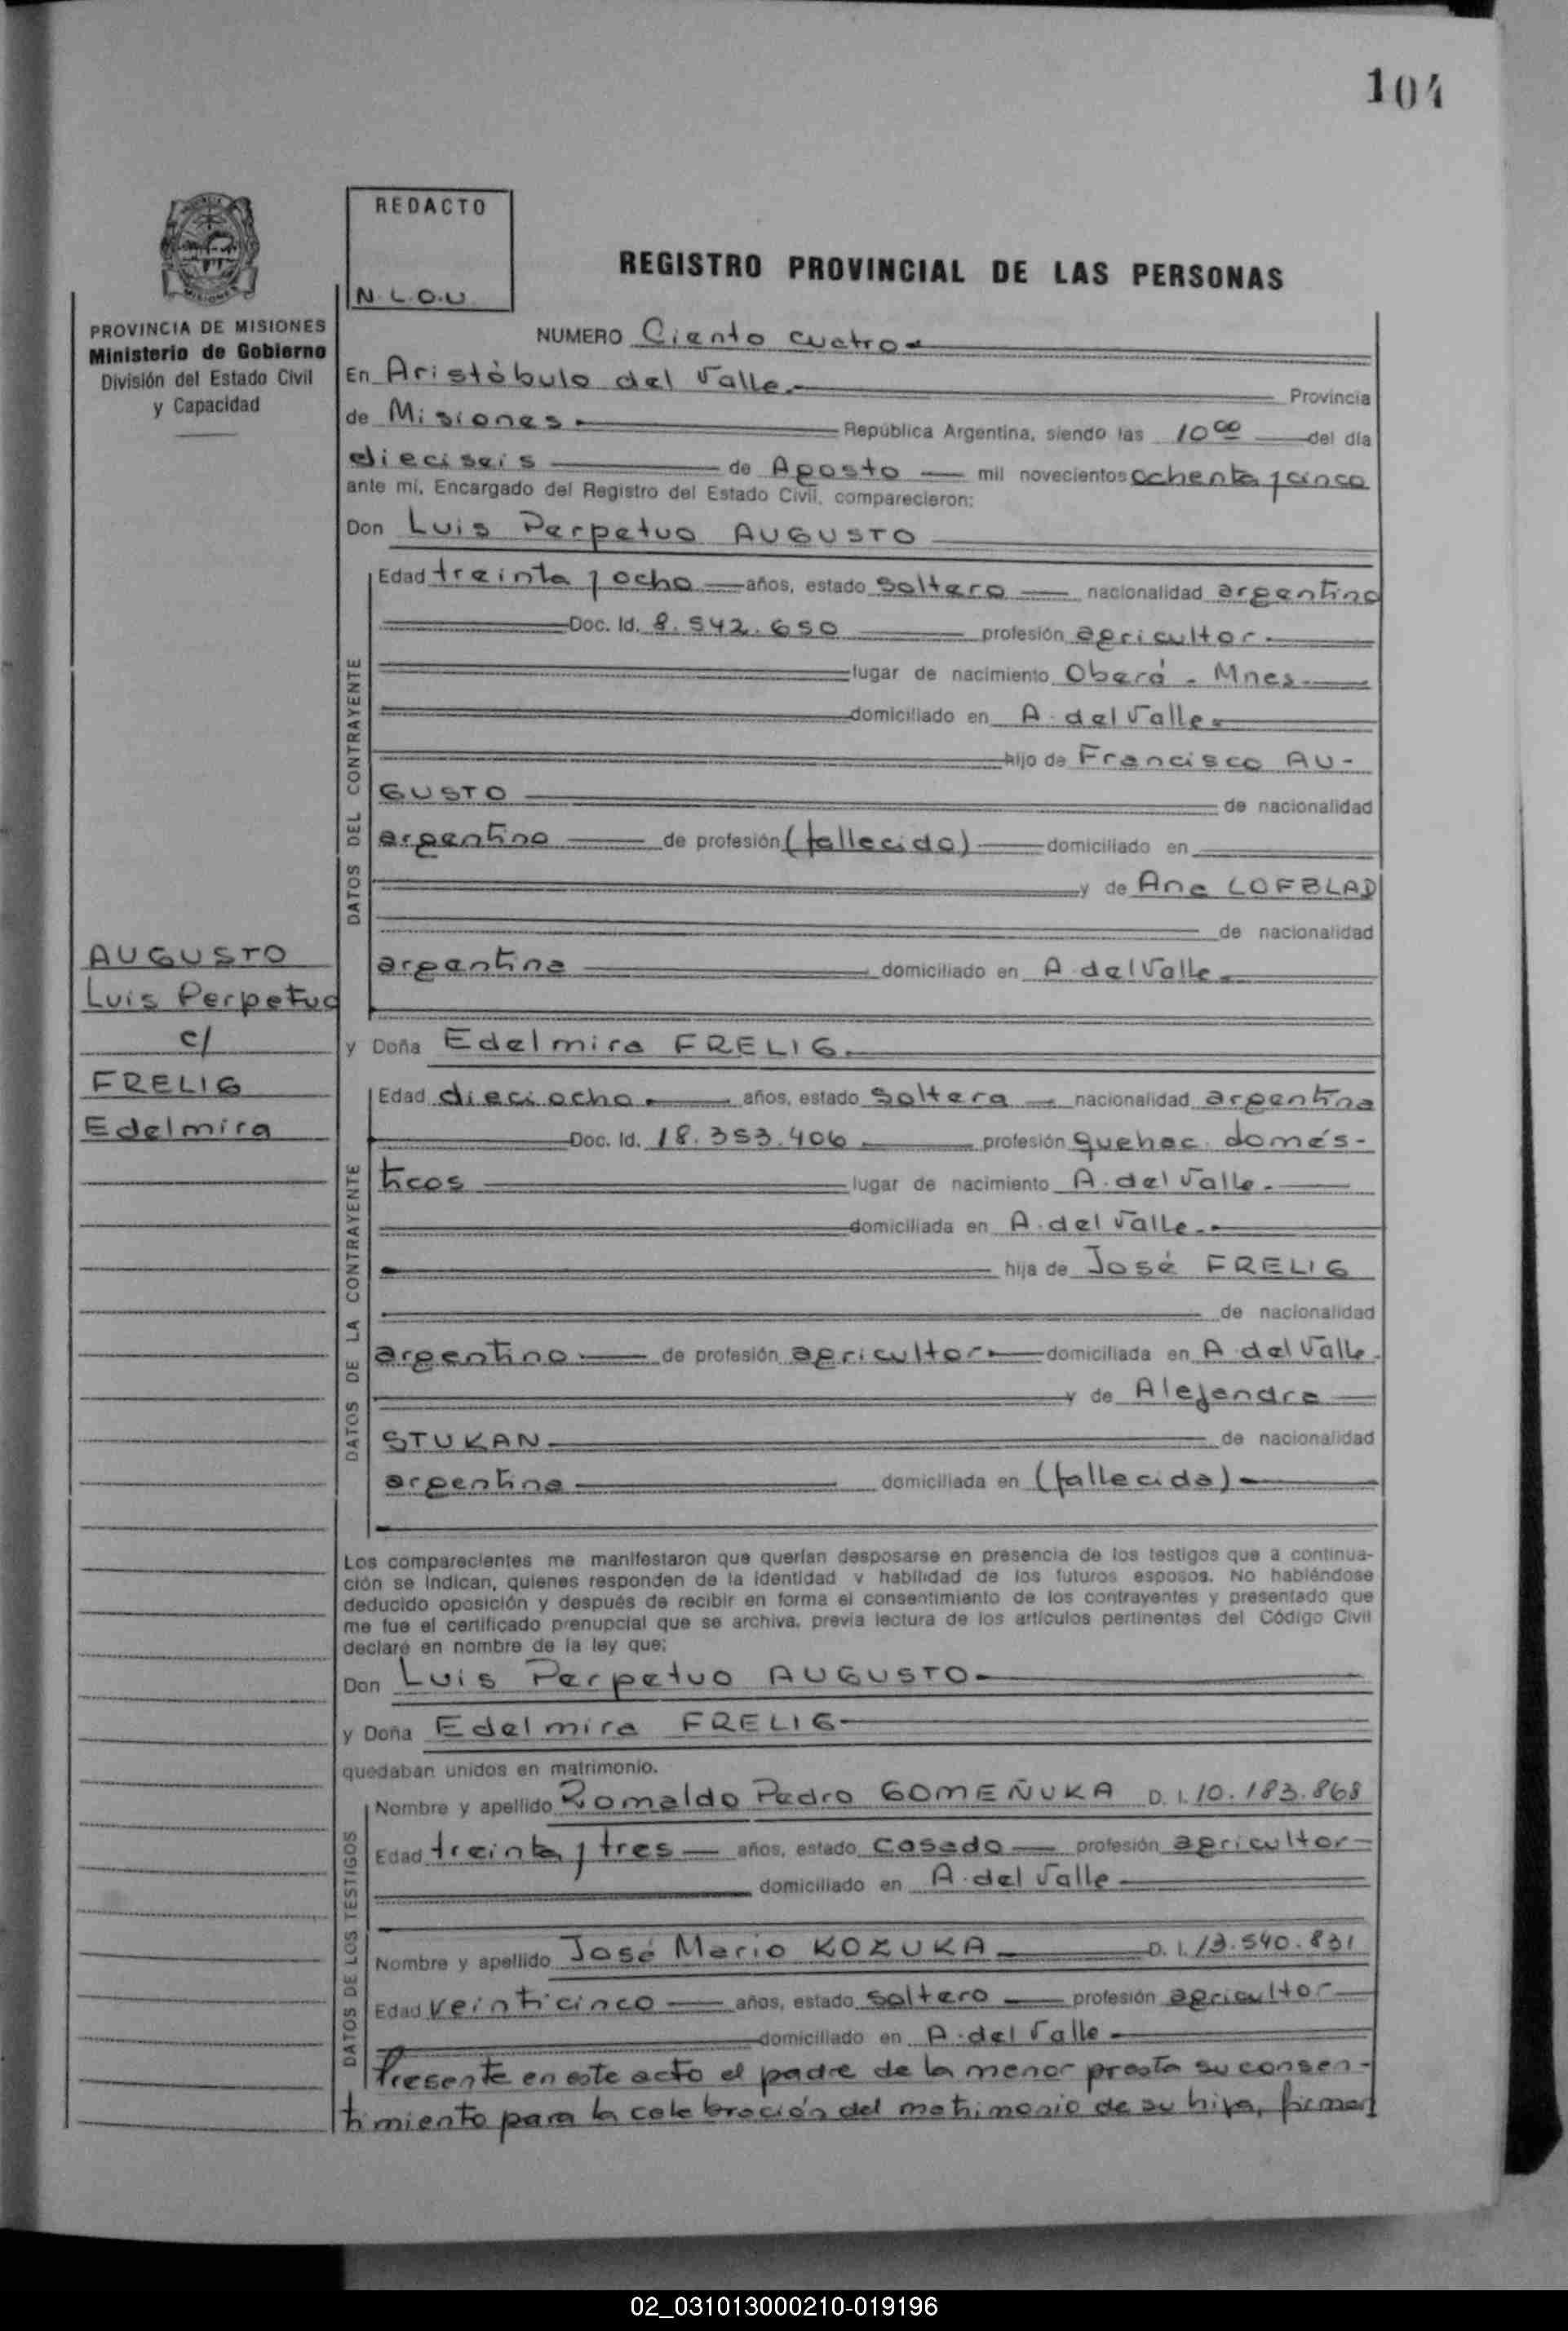 104
REDACTO
N.L.O.U
REGISTRO PROVINCIAL DE LAS PERSONAS
PROVINCIA DE MISIONES
Ministerio de Gobierno
División del Estado Civil
y Capacidad
NUMERO Ciento cuatro
En Aristóbulo del Valle. Provincia
de Misiones República Argentina, siendo las 10 00 del día
dieciseis de Agosto mil novecientos ochenta y cinco
ante mí, Encargado del Registro del Estado Civil, comparecieron:
Don Luis Perpetuo AUGUSTO
DATOS DEL CONTRAYENTE
Edad treinta y ocho años, estado soltero nacionalidad argentino
Doc. Id. 8.542.650 profesión agricultor.
lugar de nacimiento Oberá - Mnes.
domiciliado en A. del Valle
hijo de Francisco AU-
GUSTO de nacionalidad
argentino de profesión (fallecido) domiciliado en
y de Ana LOFBLAD
de nacionalidad
argentina domiciliado en A. del Valle
AUGUSTO
Luis Perpetuo
c/
FRELIG
Edelmira
y Doña Edelmira FRELIG.
DATOS DE LA CONTRAYENTE
Edad dieciocho años, estado soltera nacionalidad argentina
Doc. Id. 18.353.406 profesión quehac. domés-
ticos lugar de nacimiento A. del Valle.
domiciliada en A. del Valle.
hija de José FRELIG
de nacionalidad
argentino de profesión agricultor domiciliada en A. del Valle.
y de Alejandra
STUKAN de nacionalidad
argentina domiciliada en (fallecida)
Los comparecientes me manifestaron que querían desposarse en presencia de los testigos que a continua-
ción se indican, quienes responden de la identidad y habilidad de los futuros esposos. No habiéndose
deducido oposición y después de recibir en forma el consentimiento de los contrayentes y presentado que
me fue el certificado prenupcial que se archiva, previa lectura de los artículos pertinentes del Código Civil
declaré en nombre de la ley que:
Don Luis Perpetuo AUGUSTO
y Doña Edelmira FRELIG
quedaban unidos en matrimonio.
DATOS DE LOS TESTIGOS
Nombre y apellido Romaldo Pedro GOMEÑUKA D. I. 10.183.868
Edad treinta y tres años, estado casado profesión agricultor
domiciliado en A. del Valle
Nombre y apellido José Mario KOZUKA D. I. 13.540.831
Edad veinticinco años, estado soltero profesión agricultor
domiciliado en A. del Valle
Presente en este acto el padre de la menor presta su consen-
timiento para la celebración del matrimonio de su hija, firman
02_031013000210-019196